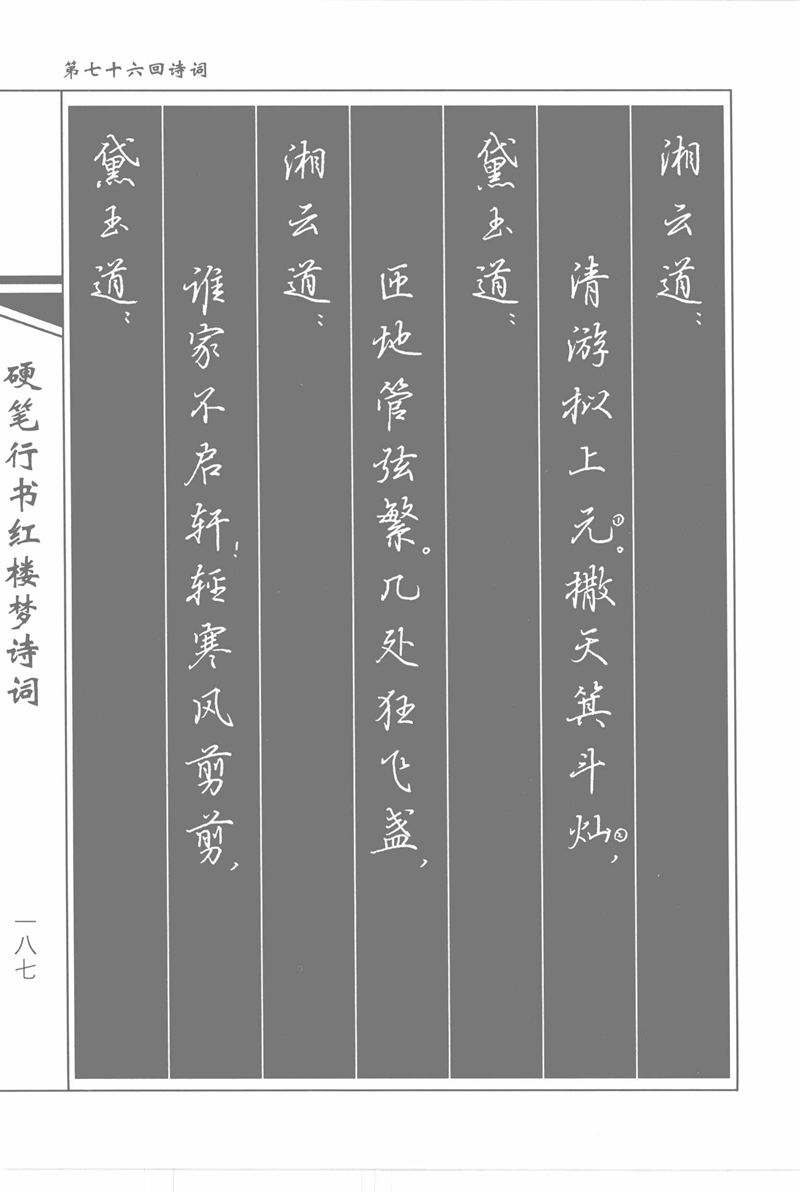 第七十六回诗词
湘云道：
清游拟上元①。撒天箕斗灿②，
黛玉道：
匝地管弦繁。几处狂飞盏，
湘云道：
谁家不启轩！轻寒风剪剪，
黛玉道：
硬笔行书红楼梦诗词
一八七